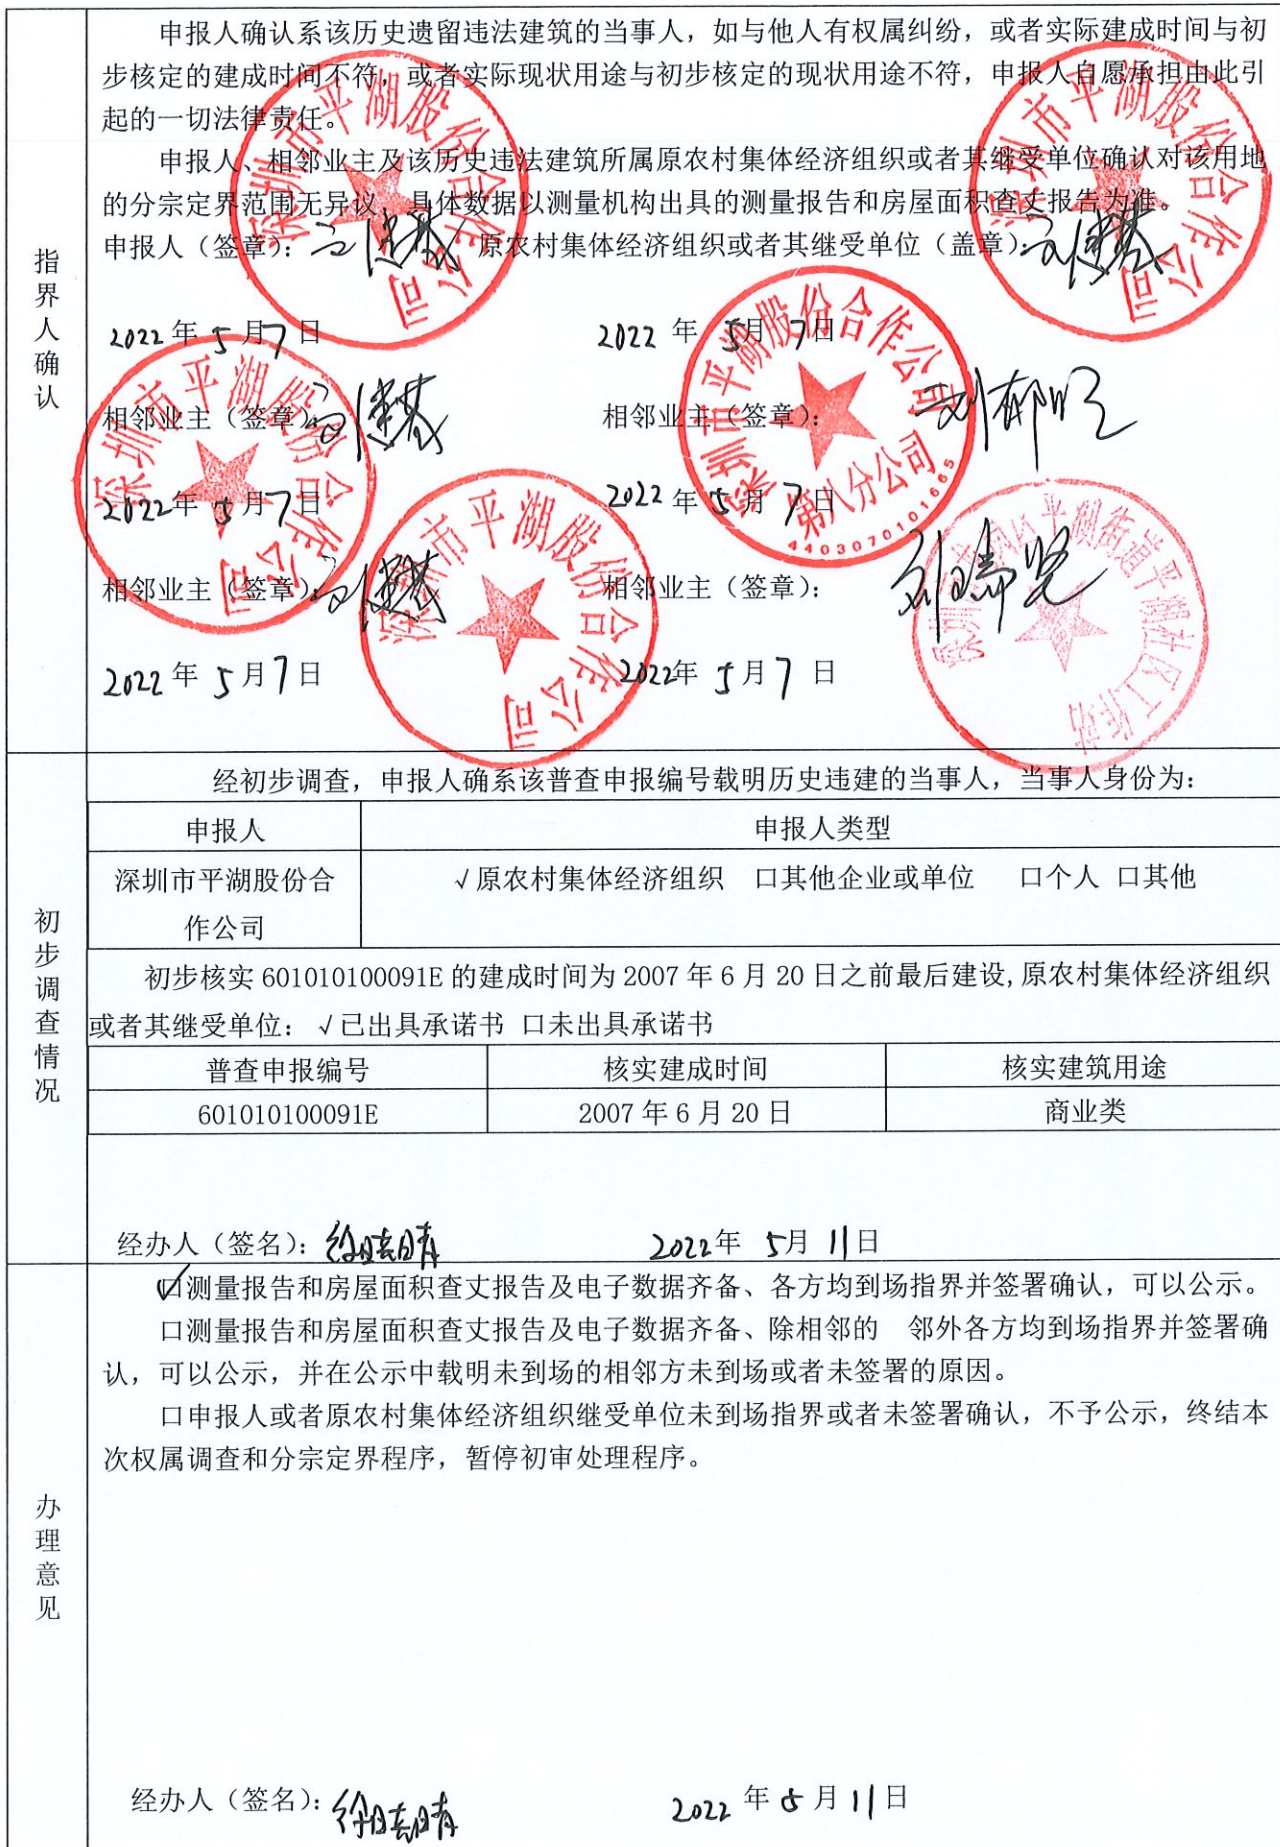 指界人确认
申报人确认系该历史遗留违法建筑的当事人，如与他人有权属纠纷，或者实际建成时间与初
步核定的建成时间不符，或者实际现状用途与初步核定的现状用途不符，申报人自愿承担由此引
起的一切法律责任。
申报人、相邻业主及该历史违法建筑所属原农村集体经济组织或者其继受单位确认对该用地
的分宗定界范围无异议，具体数据以测量机构出具的测量报告和房屋面积查丈报告为准。
申报人（签章）： 原农村集体经济组织或者其继受单位（盖章）：
深圳市平湖股份合作公司
深圳市平湖股份合作公司
2022年 5月7日 2022年 5月7日
相邻业主（签章）： 相邻业主（签章）：
深圳市平湖股份合作公司
深圳市平湖股份合作公司
第八分公司
4403070101665
2022年 5月7日 2022年 5月7日
相邻业主（签章）： 相邻业主（签章）：
深圳市平湖股份合作公司
深圳市龙岗区平湖街道平湖社区工作站
2022年 5月7日 2022年 5月7日
初步调查情况
经初步调查，申报人确系该普查申报编号载明历史违建的当事人，当事人身份为：
申报人 申报人类型
深圳市平湖股份合 √原农村集体经济组织 口其他企业或单位 口个人 口其他
作公司
初步核实 601010100091E 的建成时间为 2007 年 6 月 20 日之前最后建设,原农村集体经济组织
或者其继受单位：√已出具承诺书 口未出具承诺书
普查申报编号 核实建成时间 核实建筑用途
601010100091E 2007 年 6 月 20 日 商业类
经办人（签名）： 2022年 5月11日
办理意见
☑测量报告和房屋面积查丈报告及电子数据齐备、各方均到场指界并签署确认，可以公示。
口测量报告和房屋面积查丈报告及电子数据齐备、除相邻的 邻外各方均到场指界并签署确
认，可以公示，并在公示中载明未到场的相邻方未到场或者未签署的原因。
口申报人或者原农村集体经济组织继受单位未到场指界或者未签署确认，不予公示，终结本
次权属调查和分宗定界程序，暂停初审处理程序。
经办人（签名）： 2022年 5月11日